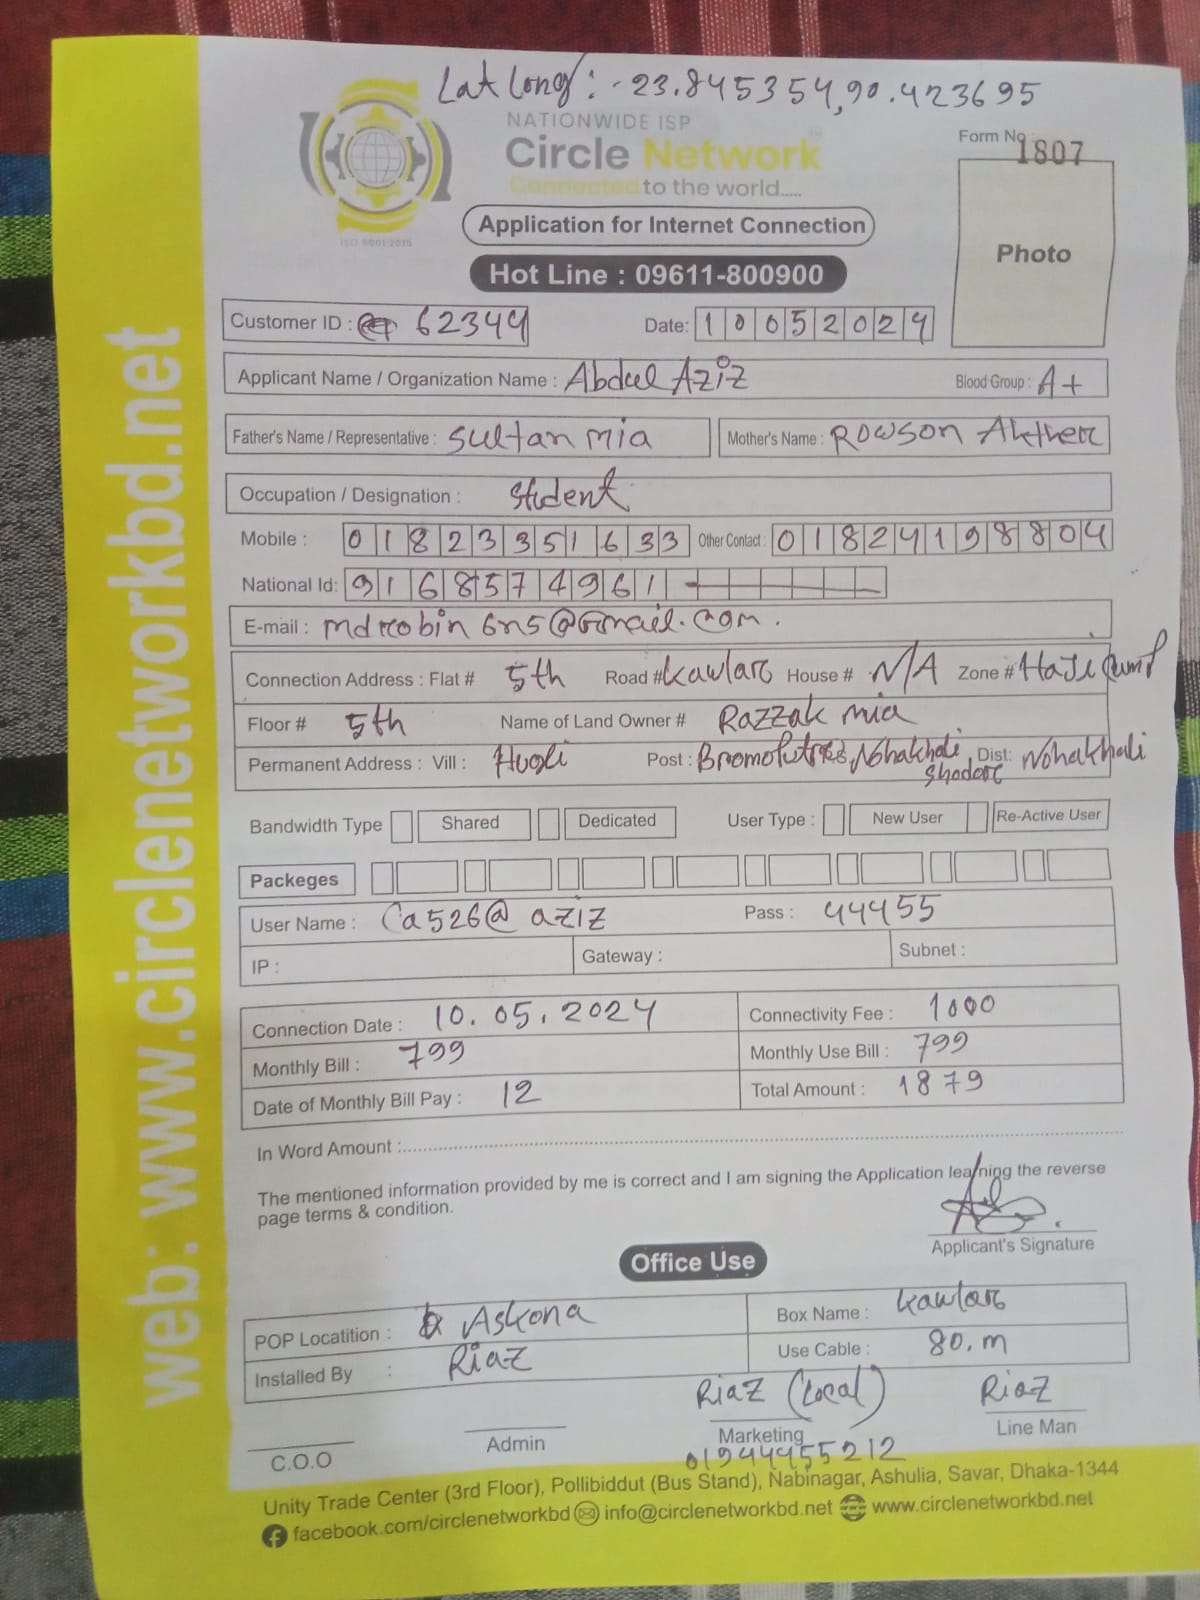 Lat Long: -23.845354,90.423695
NATIONWIDE ISP
Circle Network
Connected to the world.....
ISO 9001:2015
Form No 1807
Photo
Application for Internet Connection
Hot Line : 09611-800900
Customer ID : 62344 Date: 10052024
Applicant Name / Organization Name : Abdul Aziz Blood Group : A+
Father's Name / Representative : Sultan mia Mother's Name : Rowson Akther
Occupation / Designation : Student
Mobile : 01823351633 Other Contact : 01824198804
National Id: 9168574961
E-mail : mdrobin6n5@Gmail.com.
Connection Address : Flat # 5th Road # Kawlar House # N/A Zone # Haji
Floor # 5th Name of Land Owner # Razzak mia
Permanent Address : Vill : Hugli Post : Nohakhali Shador, Dist: Nohakhali
Bandwidth Type Shared Dedicated User Type : New User Re-Active User
Packeges
User Name : Ca526@aziz Pass : 44455
IP : Gateway : Subnet :
Connection Date : 10.05.2024 Connectivity Fee : 1000
Monthly Bill : 799 Monthly Use Bill : 799
Date of Monthly Bill Pay : 12 Total Amount : 1879
In Word Amount :
The mentioned information provided by me is correct and I am signing the Application learning the reverse
page terms & condition.
Applicant's Signature
Office Use
POP Locatition : Askona Box Name : Kawlar
Installed By : Riaz Use Cable : 80.m
Riaz (Local) Riaz
C.O.O Admin Marketing Line Man
01944455212
Unity Trade Center (3rd Floor), Pollibiddut (Bus Stand), Nabinagar, Ashulia, Savar, Dhaka-1344
facebook.com/circlenetworkbd info@circlenetworkbd.net www.circlenetworkbd.net
web: www.circlenetworkbd.net